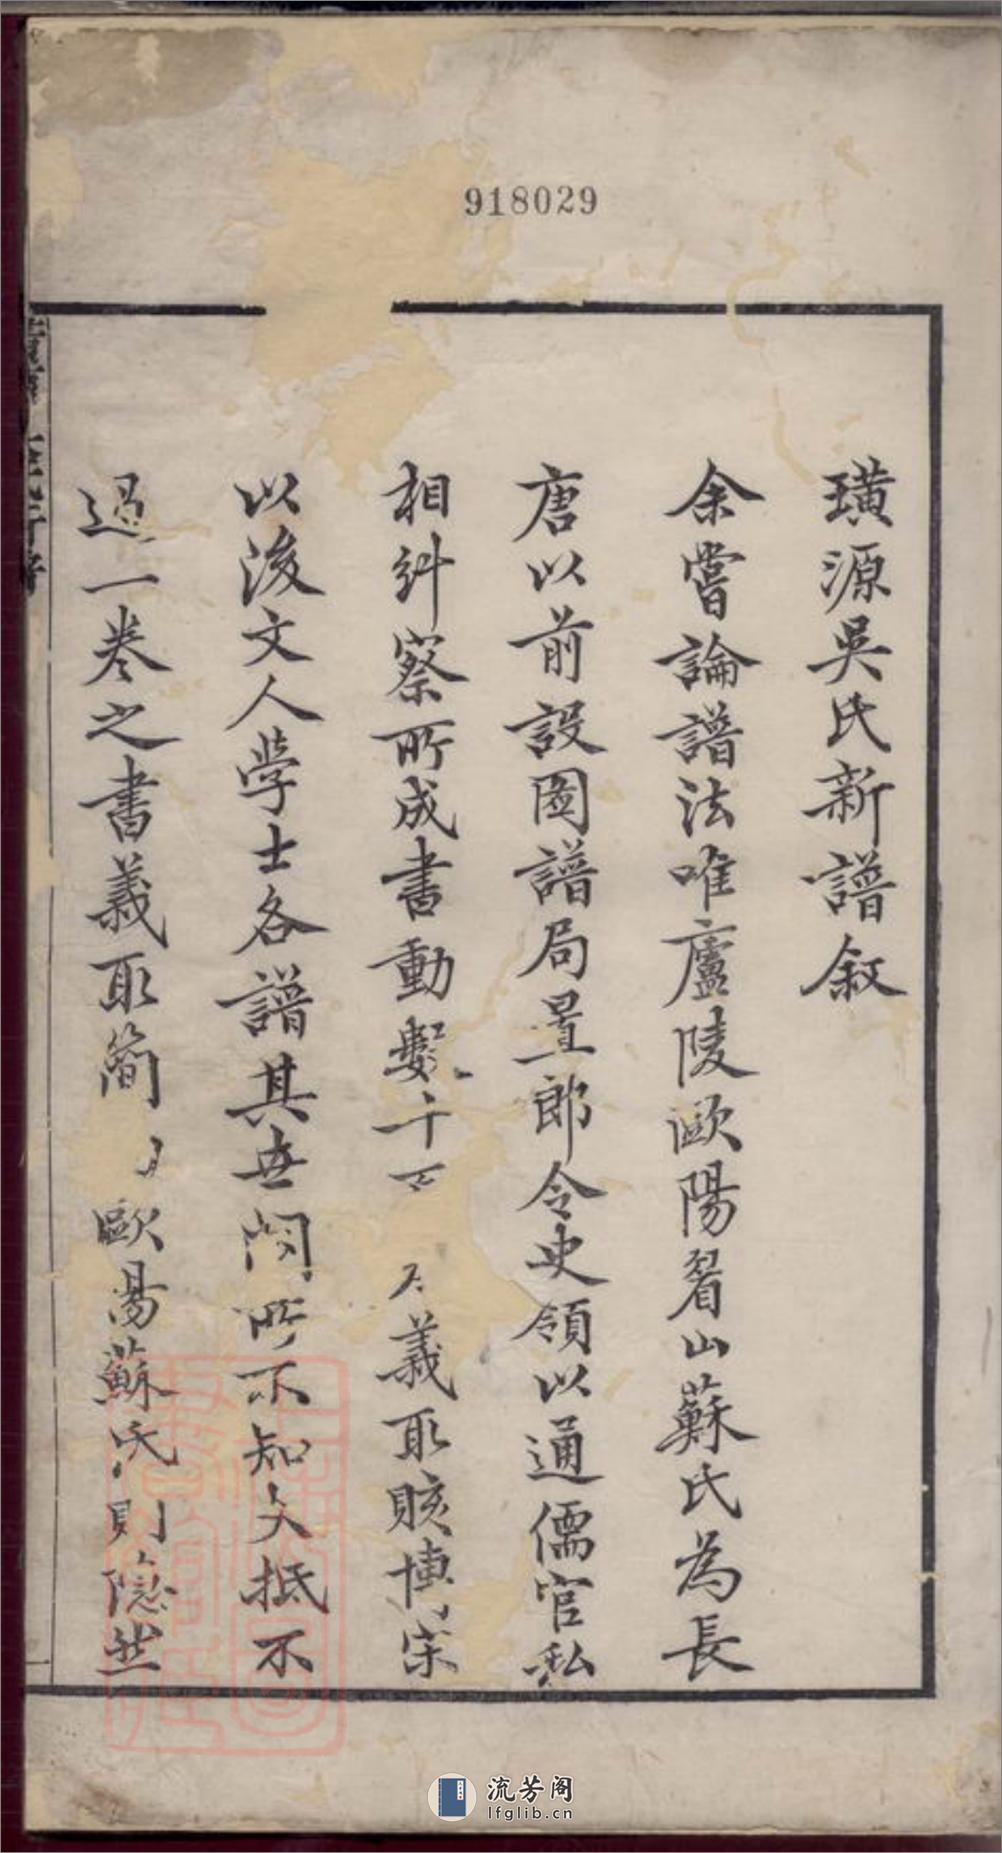 918029
璜源吳氏新譜敘
余嘗論譜法唯廬陵歐陽眉山蘇氏為長
唐以前設圖譜局置郎令史領以通儒官私
相糾察所成書動數千百 義取賅博宋
以後文人學士各譜其世閥所不知大抵不
過一卷之書義取簡 歐陽蘇氏則隱然
流芳阁
lfglib.cn